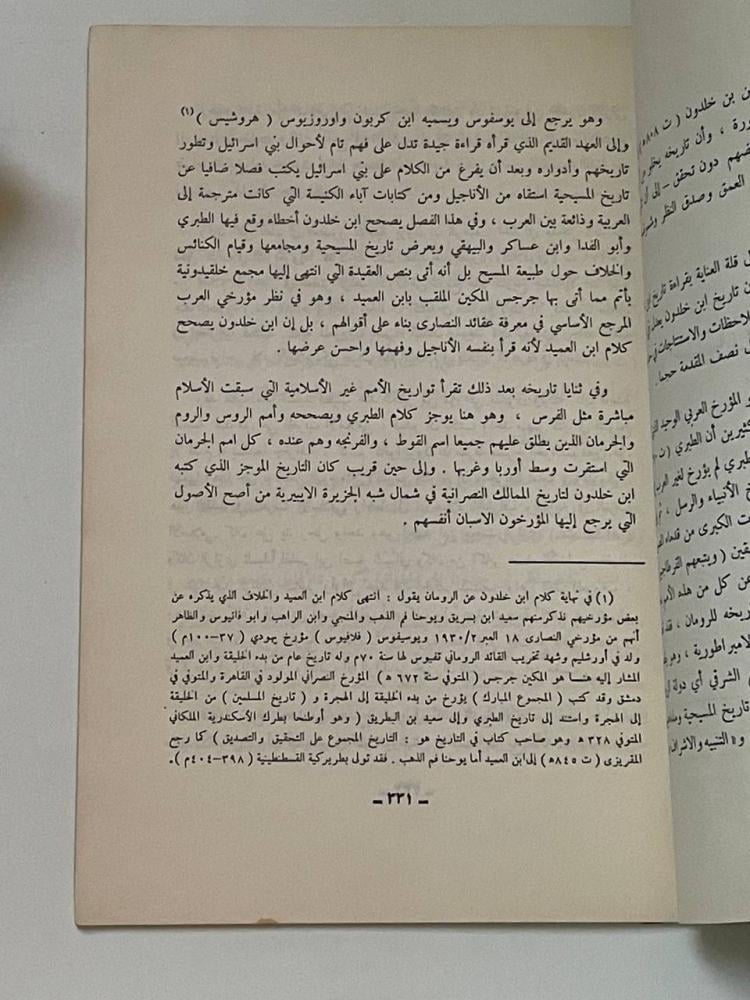 وهو يرجع إلى يوسفوس ويسميه ابن كربون واوروزيوس ( هروشيس ) (١)
وإلى العهد القديم الذي قرأه قراءة جيدة تدل على فهم تام لأحوال بني اسرائيل وتطور
تاريخهم وأدواره وبعد أن يفرغ من الكلام على بني اسرائيل يكتب فصلا ضافيا عن
تاريخ المسيحية استقاه من الأناجيل ومن كتابات آباء الكنيسة التي كانت مترجمة إلى
العربية وذائعة بين العرب ، وفي هذا الفصل يصحح ابن خلدون أخطاء وقع فيها الطبري
وأبو الفدا وابن عساكر والبيهقي ويعرض تاريخ المسيحية ومجامعها وقيام الكنائس
والخلاف حول طبيعة المسيح بل أنه أتى بنص العقيدة التي انتهى إليها مجمع خلقيدونية
يأتم مما أتى بها جرجس المكين الملقب بابن العميد ، وهو في نظر مؤرخي العرب
المرجع الأساسي في معرفة عقائد النصارى بناء على أقوالهم ، بل إن ابن خلدون يصحح
كلام ابن العميد لأنه قرأ بنفسه الأناجيل وفهمها واحسن عرضها .
وفي ثنايا تاريخه بعد ذلك تقرأ تواريخ الأمم غير الأسلامية التي سبقت الأسلام
مباشرة مثل الفرس ، وهو هنا يوجز كلام الطبري ويصححه وأمم الروس والروم
والجرمان الذين يطلق عليهم جميعا اسم القوط ، والفرنجه وهم عنده ، كل امم الجرمان
التي استقرت وسط أوربا وغربها . وإلى حين قريب كان التاريخ الموجز الذي كتبه
ابن خلدون لتاريخ الممالك النصرانية في شمال شبه الجزيرة الايبيرية من أصح الأصول
التي يرجع إليها المؤرخون الاسبان أنفسهم .
(١) في نهاية كلام ابن خلدون عن الرومان يقول : انتهى كلام ابن العميد والخلاف الذي يذكره عن
بعض مؤرخيهم نذكر منهم سعيد ابن بسريق ويوحنا فم الذهب والمنجي وابن الراهب وابو فانيوس والظاهر
أنهم من مؤرخي النصارى ١٨ العبر ١٩٣٠/٢ ويوسيفوس ( فلافيوس ) مؤرخ يهودي ( ٣٧–١٠٠م )
ولد في أورشليم وشهد تخريب القائد الروماني تفيوس لها سنة ٧٠م وله تاريخ عام من بدء الخليقة وابن العميد
المشار إليه هنا هو المكين جرجس ( المتوفي سنة ٦٧٢ ه ) المؤرخ النصراني المولود في القاهرة والمتوفي في
دمشق وقد كتب ( المجموع المبارك ) يؤرخ من بدء الخليقة إلى الهجرة و ( تاريخ المسلمين ) من الخليقة
إلى الهجرة واستند إلى تاريخ الطبري وإلى سعيد بن البطريق ( وهو أوطنخا بطرك الأسكندرية الملكاني
المتوفي ٣٢٨ ه وهو صاحب كتاب في التاريخ هو : التاريخ المجموع على التحقيق والتصديق ) كما رجع
المقريزى ( ت ٨٤٥ه ) إلى ابن العميد أما يوحنا فم الذهب . فقد تولى بطريركية القسطنطينية ( ٣٩٨–٤٠٤م ) .
– ٣٣١ –
ن بن خلدون ( ت ٨٠٨ه
ورة ، وأن تاريخه
ضهم دون تحقق – إلى أن
العمق وصدق النظر
ل قلة العناية بقراءة تاريخ
ن تاريخ ابن خلدون
لاحظات والاستنتاجات
ل نصف المقدمة حجما .
و المؤرخ العربي الوحيد
كثيرين أن الطبري ( ت
طبري لم يؤرخ لغير العرب
خ الأنبياء والرسل ،
ت الكبرى من قدماء
يقين ( ويتبعهم
عن كل من هذه
ريخه للرومان ،
لامبراطورية ،
م الشرقي أي دولة
تاريخ المسيحية
و « التنبيه والاشراف